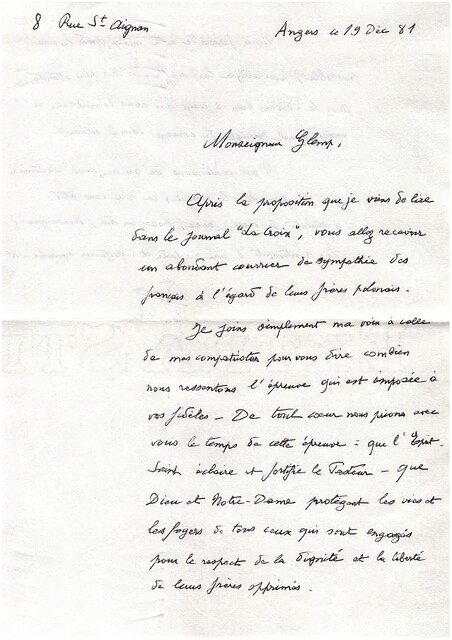 8 Rue St Aignan
Angers le 19 Déc 81
Monseigneur Glemp,
Après la proposition que je viens de lire
dans le journal "La Croix", vous allez recevoir
un abondant courrier de sympathie des
français à l'égard de leurs frères polonais.
Je joins simplement ma voix à celle
de mes compatriotes pour vous dire combien
nous ressentons l'épreuve qui est imposée à
vos fidèles - De tout cœur nous prions avec
vous le temps de cette épreuve : que l'Esprit-
Saint éclaire et fortifie le Pasteur - que
Dieu et Notre-Dame protègent les vies et
les foyers de tous ceux qui sont engagés
pour le respect de la dignité et la liberté
de leurs frères opprimés.